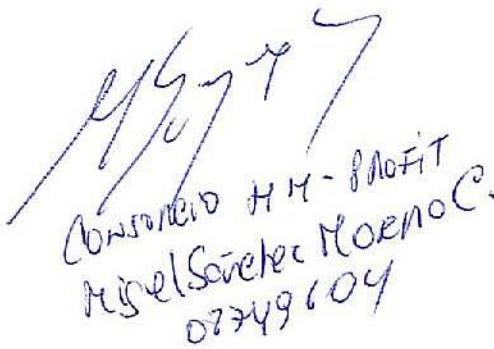 CONSORCIO MM-PROFIT
Miguel Sánchez Moreno C.
07749604